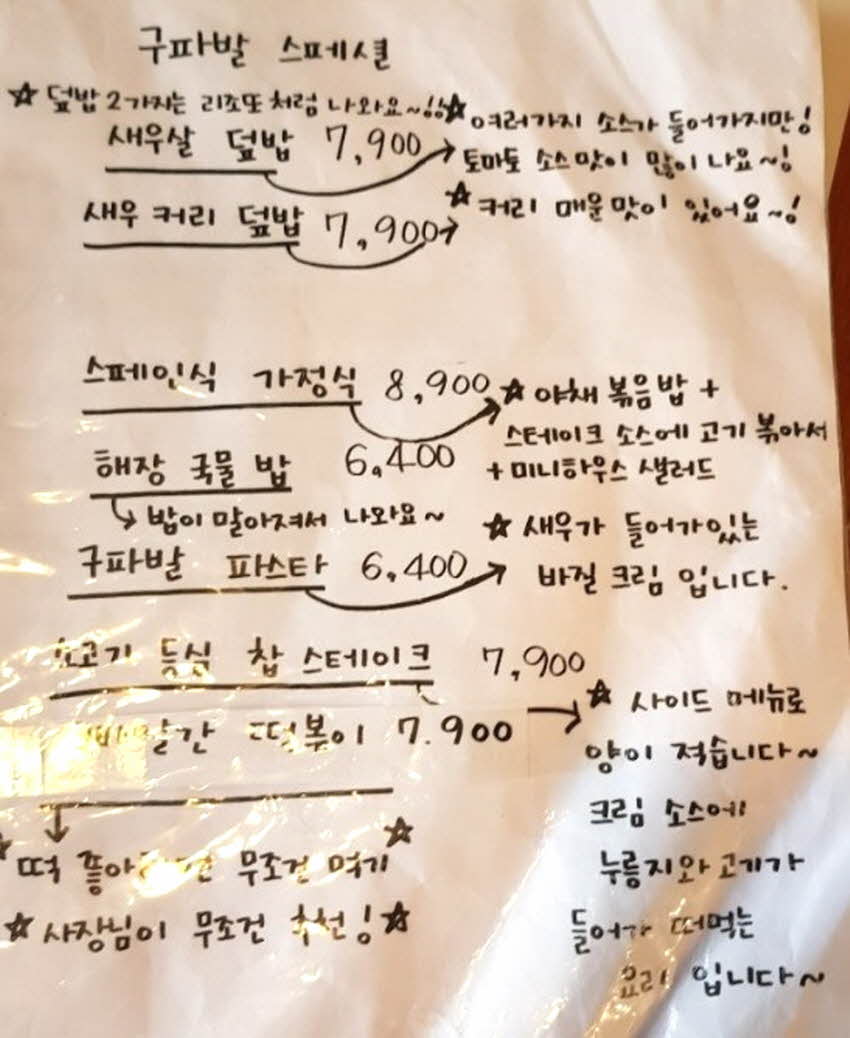 구파발 스페셜
☆ 덮밥 2가지는 리조또 처럼 나와요~!!☆
새우살 덮밥 7,900
여러가지 소스가 들어가지만!
토마토 소스맛이 많이 나요~!
새우 커리 덮밥 7,900
☆ 커리 매운맛이 있어요~!
스페인식 가정식 8,900
☆ 야채 볶음밥 +
스테이크 소스에 고기 볶아서
+ 미니하우스 샐러드
해장 국물 밥 6,400
밥이 말아져서 나와요~
구파발 파스타 6,400
☆ 새우가 들어가있는
바질 크림 입니다.
소고기 등심 찹 스테이크 7,900
☆ 사이드 메뉴로
양이 적습니다~
크림 소스에
누룽지와 고기가
들어가 떠먹는
요리 입니다~
떡볶이 7.900
☆ 떡 무조건 먹기 ☆
☆ 사장님이 무조건 추천! ☆